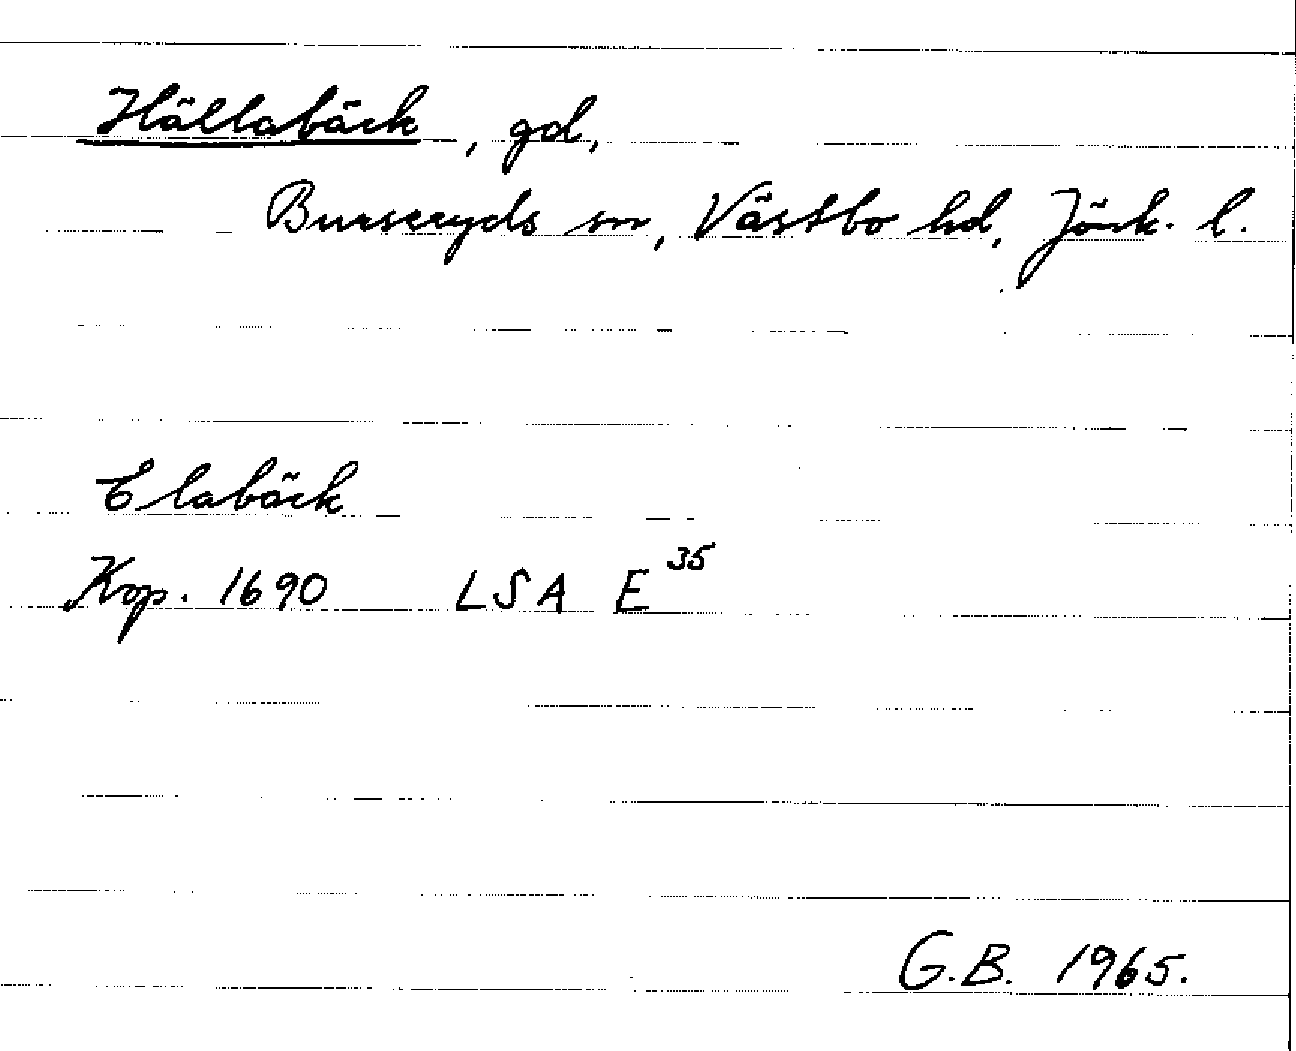 Hällabäck, gd,
Burseryds sn, Västbo hd, Jönk. l.
Elabäck
Kop. 1690 LSA E 35
G.B. 1965.